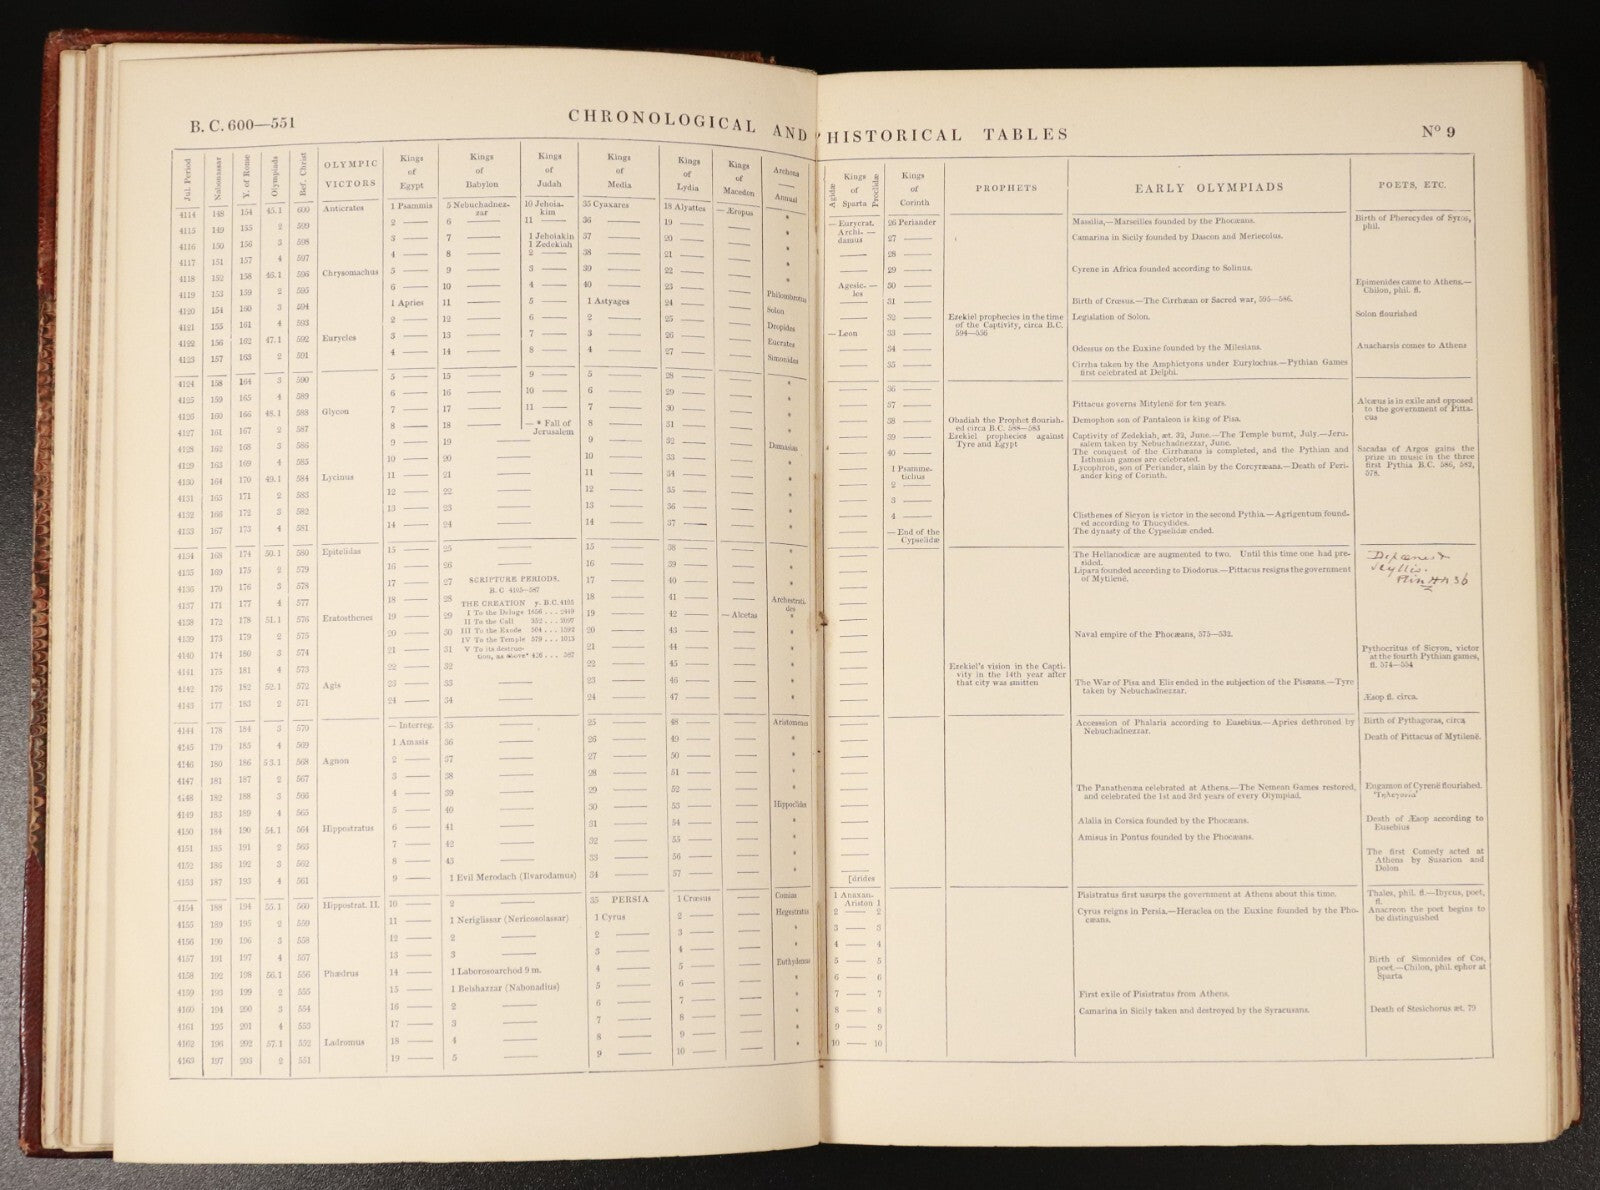 B. C. 600—551
CHRONOLOGICAL AND HISTORICAL TABLES
Nº 9
Jul. Period
Nabonassar
Y. of Rome
Olympiads
Bef. Christ
OLYMPIC
VICTORS
Kings
of
Egypt
Kings
of
Babylon
Kings
of
Judah
Kings
of
Media
Kings
of
Lydia
Kings
of
Macedon
Archons
Annual
4114 148 154 45.1 600 Anticrates 1 Psammis 5 Nebuchadnez- 10 Jehoia- 35 Cyaxares 18 Alyattes — Æropus *
zar kim
4115 149 155 2 599 2 —— 6 —— 11 —— 36 —— 19 —— —— *
4116 150 156 3 598 3 —— 7 —— 1 Jehoiakin 37 —— 20 —— —— *
1 Zedekiah
4117 151 157 4 597 4 —— 8 —— 2 —— 38 —— 21 —— —— *
4118 152 158 46.1 596 Chrysomachus 5 —— 9 —— 3 —— 39 —— 22 —— —— *
4119 153 159 2 595 6 —— 10 —— 4 —— 40 —— 23 —— —— Philombrotus
4120 154 160 3 594 1 Apries 11 —— 5 —— 1 Astyages 24 —— —— Solon
4121 155 161 4 593 2 —— 12 —— 6 —— 2 —— 25 —— —— Dropides
4122 156 162 47.1 592 Eurycles 3 —— 13 —— 7 —— 3 —— 26 —— —— Eucrates
4123 157 163 2 591 4 —— 14 —— 8 —— 4 —— 27 —— —— Simonides
4124 158 164 3 590 5 —— 15 —— 9 —— 5 —— 28 —— —— *
4125 159 165 4 589 6 —— 16 —— 10 —— 6 —— 29 —— —— *
4126 160 166 48.1 588 Glycon 7 —— 17 —— 11 —— 7 —— 30 —— —— *
4127 161 167 2 587 8 —— 18 —— — * Fall of 8 —— 31 —— —— *
Jerusalem
4128 162 168 3 586 9 —— 19 —— 9 —— 32 —— —— Damasias
4129 163 169 4 585 10 —— 20 —— 10 —— 33 —— —— *
4130 164 170 49.1 584 Lycinus 11 —— 21 —— 11 —— 34 —— —— *
4131 165 171 2 583 12 —— 22 —— 12 —— 35 —— —— *
4132 166 172 3 582 13 —— 23 —— 13 —— 36 —— —— *
4133 167 173 4 581 14 —— 24 —— 14 —— 37 —— —— *
4134 168 174 50.1 580 Epitelidas 15 —— 25 —— 15 —— 38 —— —— *
4135 169 175 2 579 16 —— 26 —— 16 —— 39 —— —— *
4136 170 176 3 578 17 —— 27 17 —— 40 —— —— *
4137 171 177 4 577 18 —— 28 18 —— 41 —— —— Archestrati-
des
4138 172 178 51.1 576 Eratosthenes 19 —— 29 19 —— 42 —— — Alcetas *
4139 173 179 2 575 20 —— 30 20 —— 43 —— —— *
4140 174 180 3 574 21 —— 31 21 —— 44 —— —— *
SCRIPTURE PERIODS.
B. C 4105—587
THE CREATION y. B.C. 4105
I To the Deluge 1656 . . . 2449
II To the Call 352 . . . 2097
III To the Exode 504 . . . 1592
IV To the Temple 579 . . . 1013
V To its destruc-
tion, as above* 426 . . . 587
4141 175 181 4 573 22 —— 32 —— 22 —— 45 —— —— *
4142 176 182 52.1 572 Agis 23 —— 33 —— 23 —— 46 —— —— *
4143 177 183 2 571 24 —— 34 —— 24 —— 47 —— —— *
4144 178 184 3 570 — Interreg. 35 —— 25 —— 48 —— —— Aristomenes
4145 179 185 4 569 1 Amasis 36 —— 26 —— 49 —— —— *
4146 180 186 53.1 568 Agnon 2 —— 37 —— 27 —— 50 —— —— *
4147 181 187 2 567 3 —— 38 —— 28 —— 51 —— —— *
4148 182 188 3 566 4 —— 39 —— 29 —— 52 —— —— Hippoclides
4149 183 189 4 565 5 —— 40 —— 30 —— 53 —— —— *
4150 184 190 54.1 564 Hippostratus 6 —— 41 —— 31 —— 54 —— —— *
4151 185 191 2 563 7 —— 42 —— 32 —— 55 —— —— *
4152 186 192 3 562 8 —— 43 —— 33 —— 56 —— —— *
4153 187 193 4 561 9 —— 1 Evil Merodach (Ilvarodamus) 34 —— 57 —— —— *
4154 188 194 55.1 560 Hippostrat. II. 10 —— 2 —— 35 PERSIA 1 Crœsus —— Comias
4155 189 195 2 559 11 —— 1 Neriglissar (Nericosolassar) 1 Cyrus 2 —— —— Hegestratus
4156 190 196 3 558 12 —— 2 —— 2 —— 3 —— —— *
4157 191 197 4 557 13 —— 3 —— 3 —— 4 —— —— *
4158 192 198 56.1 556 Phædrus 14 —— 1 Laborosoarchod 9 m. 4 —— 5 —— —— Euthydemus
4159 193 199 2 555 15 —— 1 Belshazzar (Nabonadius) 5 —— 6 —— —— *
4160 194 200 3 554 16 —— 2 —— 6 —— 7 —— —— *
4161 195 201 4 553 17 —— 3 —— 7 —— 8 —— —— *
4162 196 202 57.1 552 Ladromus 18 —— 4 —— 8 —— 9 —— —— *
4163 197 203 2 551 19 —— 5 —— 9 —— 10 —— —— *
Agidæ
Kings
of
Sparta
Proclidæ
Kings
of
Corinth
PROPHETS
EARLY OLYMPIADS
POETS, ETC.
— Eurycrat.
Archi- —
damus
Agesic- —
les
— Leon
[drides
1 Anaxan-
Ariston 1
2 —— 2
3 —— 3
4 —— 4
5 —— 5
6 —— 6
7 —— 7
8 —— 8
9 —— 9
10 —— 10
26 Periander
27 ——
28 ——
29 ——
30 ——
31 ——
32 ——
33 ——
34 ——
35 ——
36 ——
37 ——
38 ——
39 ——
40 ——
1 Psamme-
tichus
2 ——
3 ——
4 ——
— End of the
Cypselidæ
Ezekiel prophecies in the time
of the Captivity, circa B.C.
594—536
Obadiah the Prophet flourish-
ed circa B.C. 588—583
Ezekiel prophecies against
Tyre and Egypt
Ezekiel's vision in the Capti-
vity in the 14th year after
that city was smitten
Massilia,—Marseilles founded by the Phocæans.
Camarina in Sicily founded by Dascon and Menecolus.
Cyrene in Africa founded according to Solinus.
Birth of Crœsus.—The Cirrhæan or Sacred war, 595—586.
Legislation of Solon.
Odessus on the Euxine founded by the Milesians.
Cirrha taken by the Amphictyons under Eurylochus.—Pythian Games
first celebrated at Delphi.
Pittacus governs Mitylenë for ten years.
Demophon son of Pantaleon is king of Pisa.
Captivity of Zedekiah, æt. 32, June.—The Temple burnt, July.—Jeru-
salem taken by Nebuchadnezzar, June.
The conquest of the Cirrhæans is completed, and the Pythian and
Isthmian games are celebrated.
Lycophron, son of Periander, slain by the Corcyræans.—Death of Peri-
ander king of Corinth.
Clisthenes of Sicyon is victor in the second Pythia.—Agrigentum found-
ed according to Thucydides.
The dynasty of the Cypselidæ ended.
The Hellanodicæ are augmented to two. Until this time one had pre-
sided.
Lipara founded according to Diodorus.—Pittacus resigns the government
of Mitylenë.
Naval empire of the Phocæans, 575—532.
The War of Pisa and Elis ended in the subjection of the Pisæans.—Tyre
taken by Nebuchadnezzar.
Accession of Phalaris according to Eusebius.—Apries dethroned by
Nebuchadnezzar.
The Panathenæa celebrated at Athens.—The Nemean Games restored,
and celebrated the 1st and 3rd years of every Olympiad.
Alalia in Corsica founded by the Phocæans.
Amisus in Pontus founded by the Phocæans.
Pisistratus first usurps the government at Athens about this time.
Cyrus reigns in Persia.—Heraclea on the Euxine founded by the Pho-
cæans.
First exile of Pisistratus from Athens.
Camarina in Sicily taken and destroyed by the Syracusans.
Birth of Pherecydes of Syros,
phil.
Epimenides came to Athens.—
Chilon, phil. fl.
Solon flourished
Anacharsis comes to Athens
Alcæus is in exile and opposed
to the government of Pitta-
cus
Sacadas of Argos gains the
prize in music in the three
first Pythia B.C. 586, 582,
578.
Dipœnes &
Scyllis.
Plin HN 36
Pythocritus of Sicyon, victor
at the fourth Pythian games,
fl. 574—554
Æsop fl. circa.
Birth of Pythagoras, circa
Death of Pittacus of Mytilenë.
Eugamon of Cyrenë flourished.
'Τηλεγονία'
Death of Æsop according to
Eusebius
The first Comedy acted at
Athens by Susarion and
Dolon
Thales, phil. fl.—Ibycus, poet,
fl.
Anacreon the poet begins to
be distinguished
Birth of Simonides of Cos,
poet.—Chilon, phil. ephor at
Sparta
Death of Stesichorus æt. 79